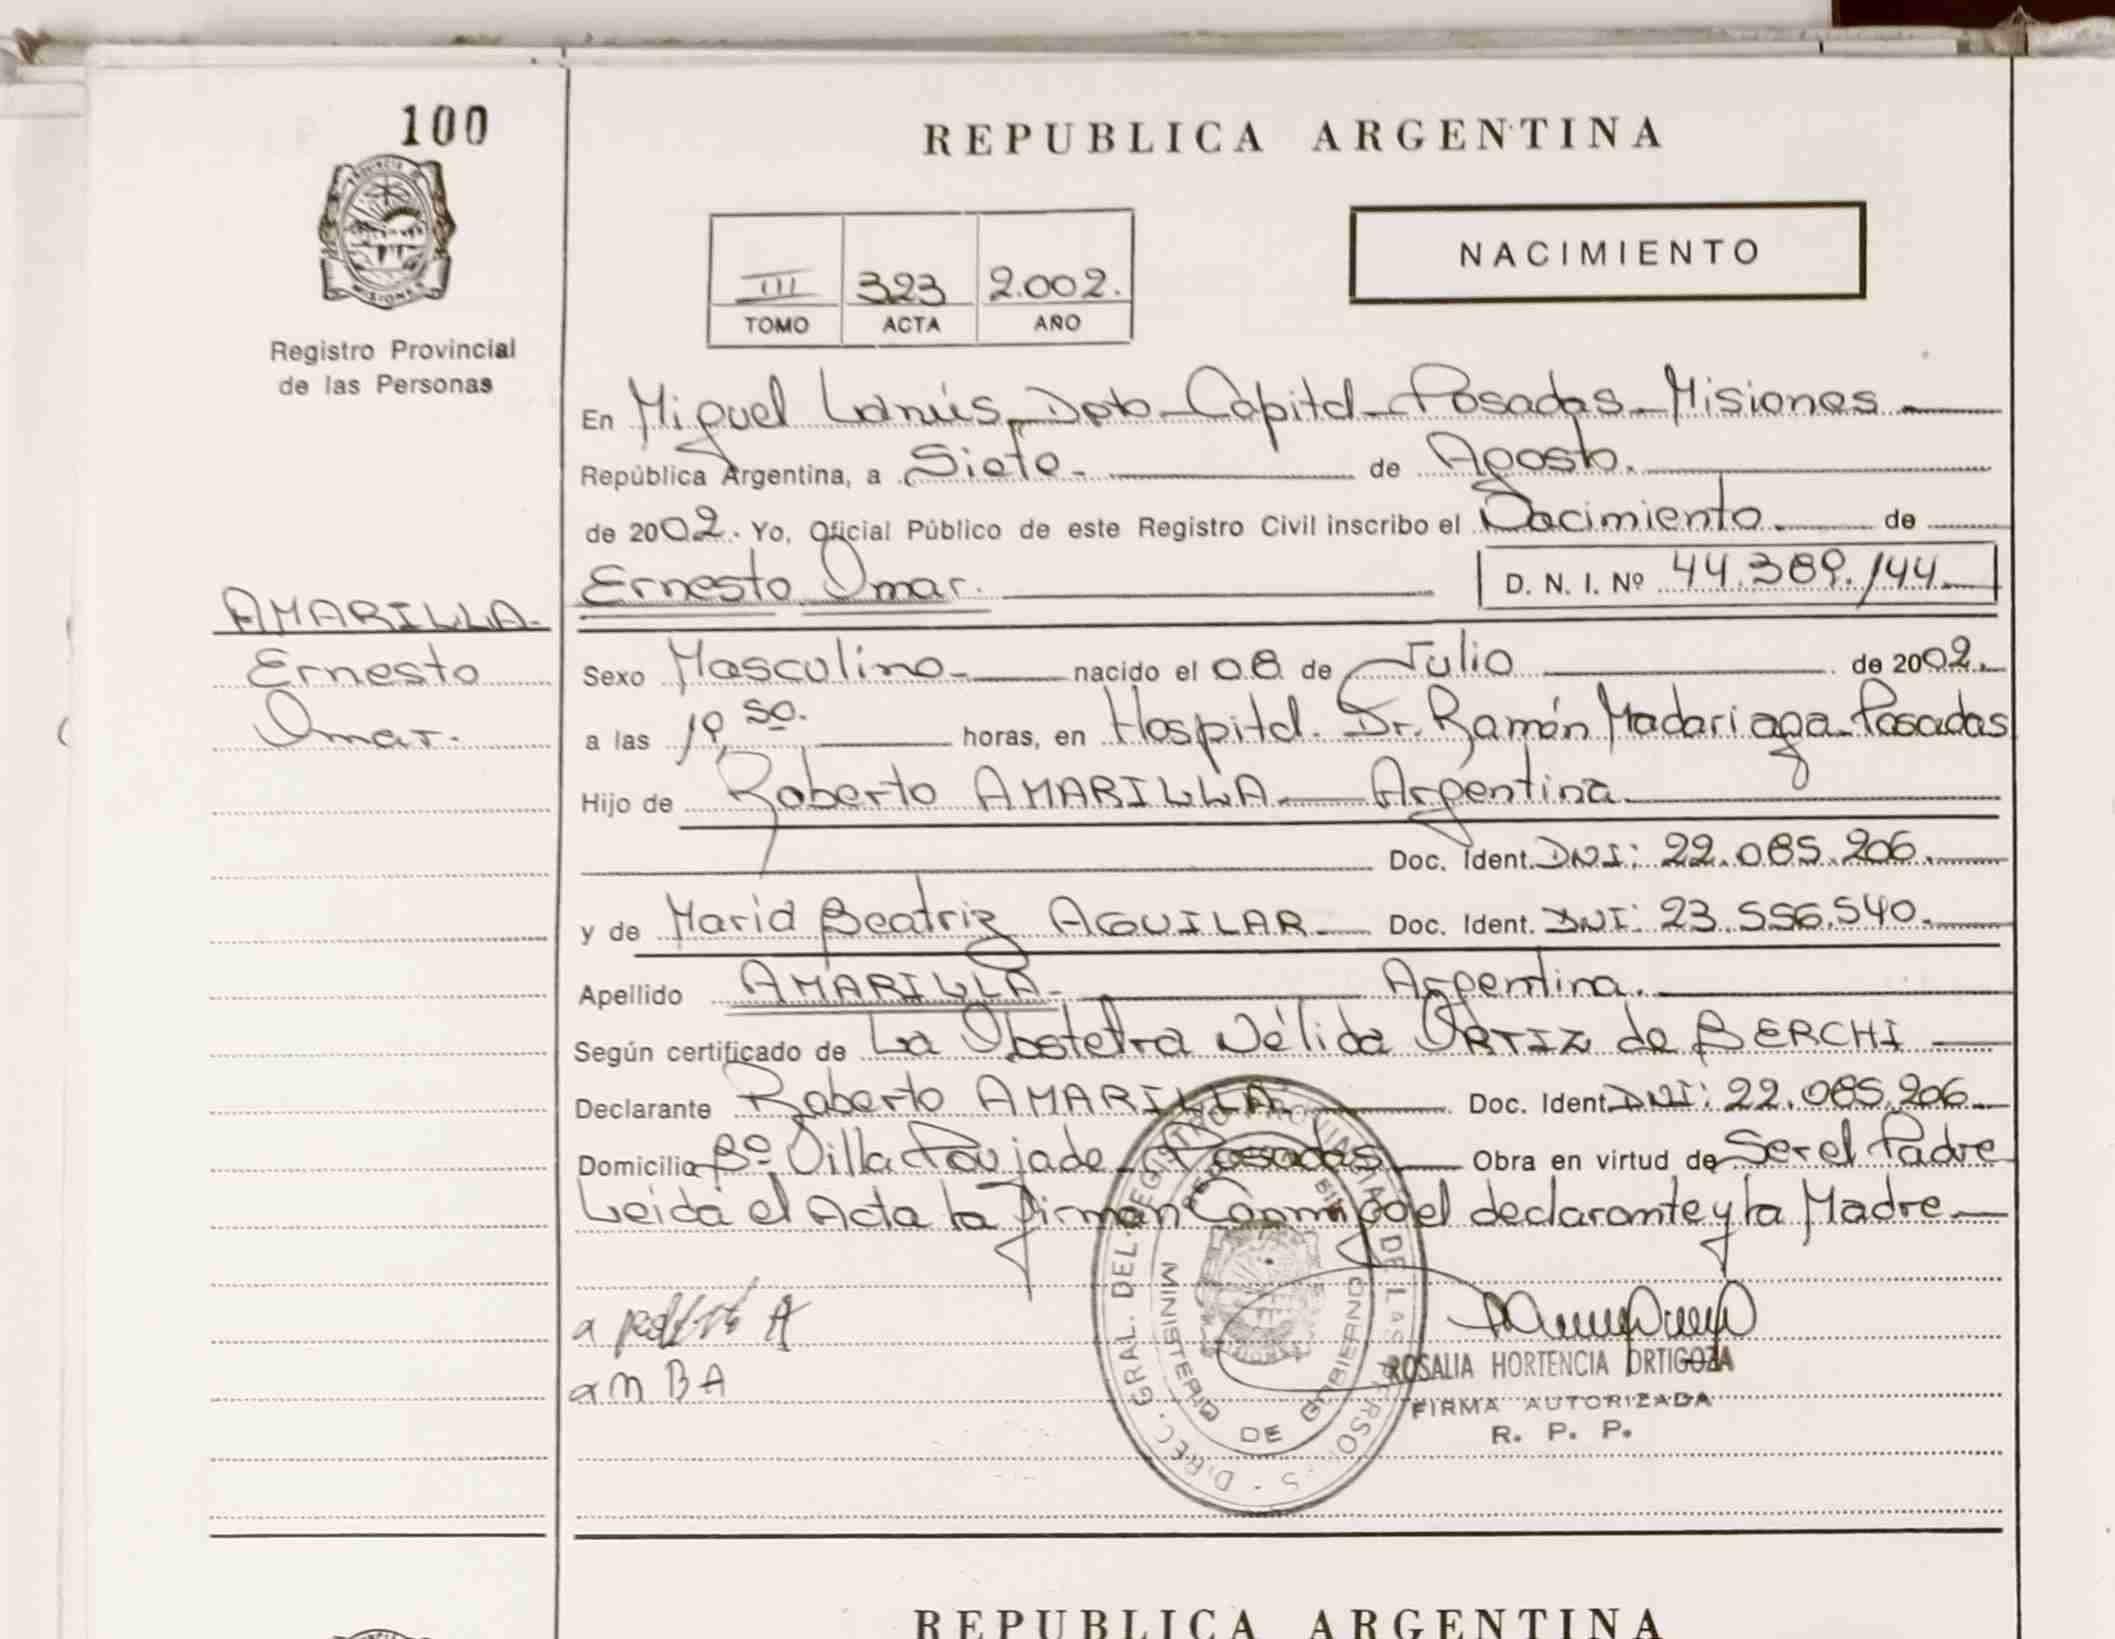 100
REPUBLICA ARGENTINA
PROVINCIA DE
MISIONES
NACIMIENTO
III 323 2.002.
TOMO ACTA AÑO
Registro Provincial
de las Personas
En Miguel Lanús, Dpto Capital Posadas Misiones
República Argentina, a Siete de Agosto.
de 2002. Yo, Oficial Público de este Registro Civil inscribo el Nacimiento de
Ernesto Omar. D. N. I. Nº 44.389.144
AMARILLA
Ernesto
Omar.
Sexo Masculino nacido el 08 de Julio de 2002.
a las 19,50. horas, en Hospital. Dr. Ramón Madariaga Posadas
Hijo de Roberto AMARILLA Argentina
Doc. Ident. DNI: 22.085.206.
y de María Beatriz AGUILAR Doc. Ident. DNI: 23.556.540.
Apellido AMARILLA Argentina.
Según certificado de La Obstetra Nélida ORTIZ de BERCHI
Declarante Roberto AMARILLA Doc. Ident. DNI: 22.085.206
Domicilio Bº Villa Poujade Posadas Obra en virtud de Ser el Padre
Leída el Acta la firman Conmigo el declarante y la Madre
a M B A
ROSALIA HORTENCIA ORTIGOZA
FIRMA AUTORIZADA
R. P. P.
DIREC. GRAL. DEL REGISTRO PROVINCIAL DE LAS PERSONAS
MINISTERIO DE GOBIERNO
REPUBLICA ARGENTINA